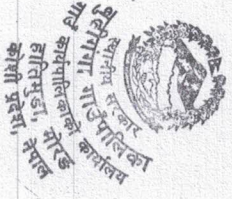 स्थानीय सरकार
बुढीगंगा गाउँपालिका
गाउँ कार्यपालिकाको कार्यालय
हात्तिमुडा, मोरङ
कोशी प्रदेश, नेपाल